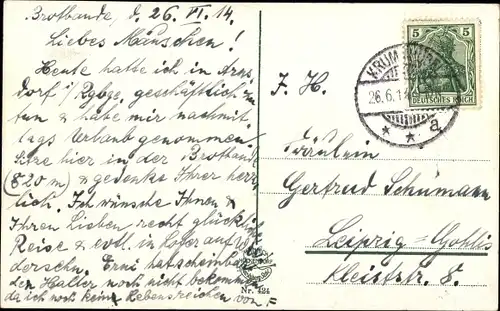 Brotbaude, d. 26. VI. 14.
Liebes Mäuschen!
Heute hatte ich in Arns-
dorf i/Rgbge. geschäftlich zu
tun & habe mir nachmit-
tags Urlaub genommen.
Sitze hier in der Brotbaude
(820 m) & gedenke Ihrer herz-
lich. Ich wünsche Ihnen &
Ihren Lieben recht glückliche
Reise & evtl. in auf Wie-
dersehn. Erni hat scheinbar
den Halter noch nicht bekommen
da ich noch kein Lebenszeichen von
F. H.
Fräulein
Gertrud Schumann
Leipzig-Gohlis
Kleiststr. 8.
5 5
DEUTSCHES REICH
KRUMMHÜBEL
26.6.14
* * a
Nr. 424